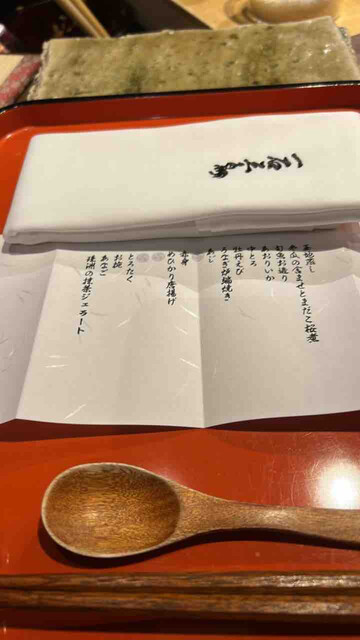 蒸し
冬瓜の含ませとまだこ桜煮
旬魚お造り
あおりいか
中とろ
牡丹えび
うなぎ 焼き
あじ
赤身
めひかり唐揚げ
とろたく
お椀
あなご
の抹茶ジェラート